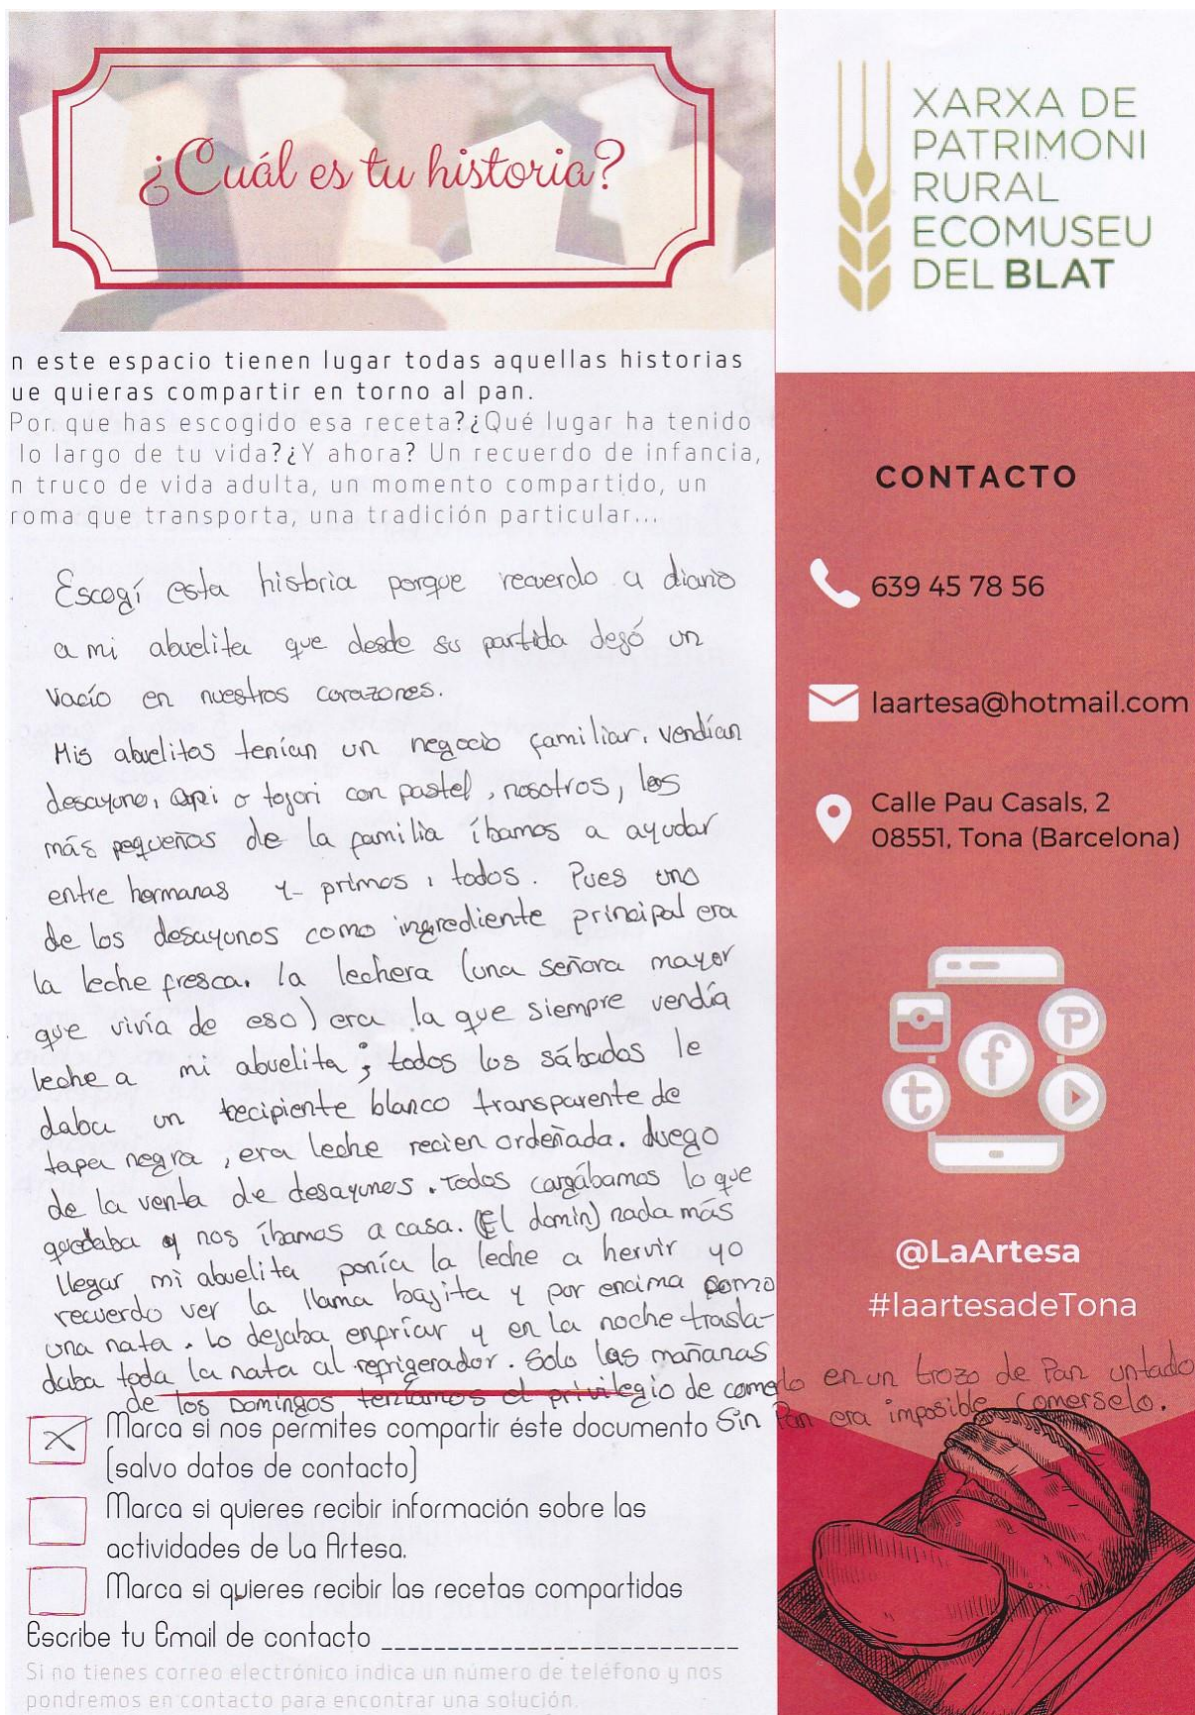 ¿Cuál es tu historia?
n este espacio tienen lugar todas aquellas historias
ue quieras compartir en torno al pan.
Por que has escogido esa receta?¿Qué lugar ha tenido
lo largo de tu vida?¿Y ahora? Un recuerdo de infancia,
n truco de vida adulta, un momento compartido, un
roma que transporta, una tradición particular...
Escogí esta historia porque recuerdo a diario
a mi abuelita que desde su partida dejó un
vacío en nuestros corazones.
Mis abuelitos tenían un negocio familiar, vendían
desayuno, api o tojori con pastel, nosotros, los
más pequeños de la familia íbamos a ayudar
entre hermanas y primos, todos. Pues uno
de los desayunos como ingrediente principal era
la leche fresca. La lechera (una señora mayor
que vivía de eso) era la que siempre vendía
leche a mi abuelita; todos los sábados le
daba un recipiente blanco transparente de
tapa negra, era leche recien ordeñada. Luego
de la venta de desayunos. Todos cargábamos lo que
quedaba y nos íbamos a casa. (El domin) nada más
llegar mi abuelita ponía la leche a hervir yo
recuerdo ver la llama bajita y por encima como
una nata. Lo dejaba enfriar y en la noche trasla-
daba toda la nata al refrigerador. Solo las mañanas
de los Domingos teníamos el privilegio de comerlo en un trozo de Pan untado
Sin Pan era imposible comerselo.
Marca si nos permites compartir éste documento
(salvo datos de contacto)
Marca si quieres recibir información sobre las
actividades de La Artesa.
Marca si quieres recibir las recetas compartidas
Escribe tu Email de contacto
Si no tienes correo electrónico indica un número de teléfono y nos
pondremos en contacto para encontrar una solución.
XARXA DE
PATRIMONI
RURAL
ECOMUSEU
DEL BLAT
CONTACTO
639 45 78 56
laartesa@hotmail.com
Calle Pau Casals, 2
08551, Tona (Barcelona)
@LaArtesa
#laartesadeTona